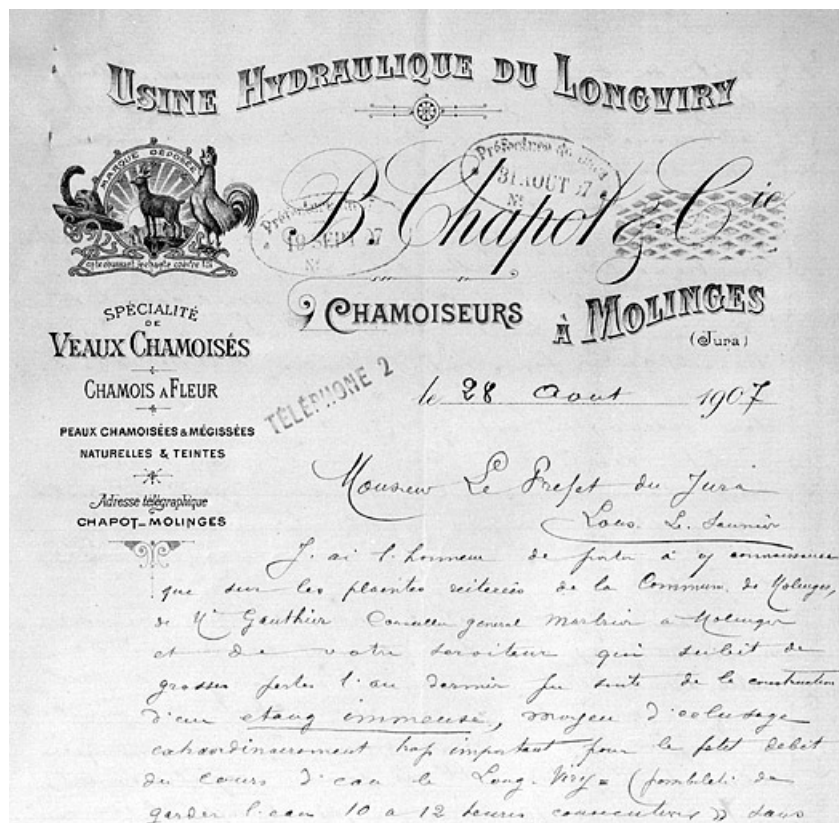 USINE HYDRAULIQUE DU LONGVIRY
MARQUE DÉPOSÉE
B. Chapot & Cie
Préfecture du Jura
31 AOUT 07
No
Préfecture du
19 SEPT 07
No
CHAMOISEURS
À MOLINGES
(Jura)
SPÉCIALITÉ
DE
VEAUX CHAMOISÉS
CHAMOIS A FLEUR
PEAUX CHAMOISÉES & MÉGISSÉES
NATURELLES & TEINTES
Adresse télégraphique
CHAPOT-MOLINGES
TÉLÉPHONE 2
le 28 Aout 1907
Monsieur Le Prefet du Jura
Lons L. Saunier
J. ai l. honneur de porter à connaissance
que sur les plaintes réiterées de la Commune de Molinges,
de Mr Gauthier Conseiller general Marbrier a Molinges
et de votre serviteur qui subit de
grosses pertes l. an dernier par suite de la construction
d'un etang immense, moyen d'eclusage
extraordinairement trop important pour le petit debit
du cours d'eau le Long-Viry = (possibilité de
garder l. eau 10 a 12 heures consecutives) sans